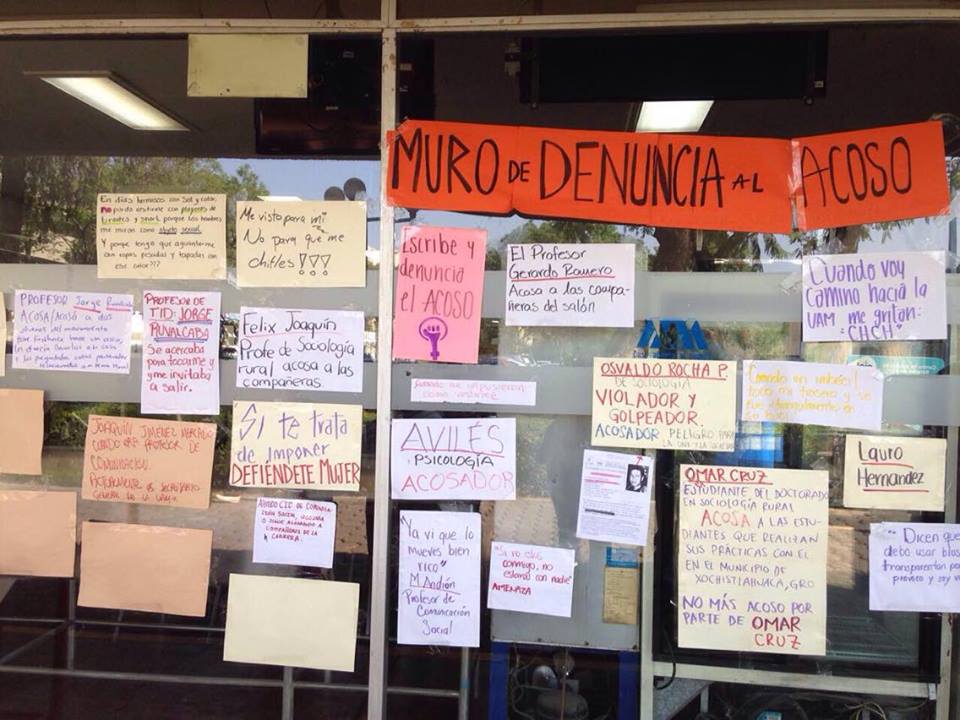 MURO DE DENUNCIA AL ACOSO
En días hermosos con Sol y calor,
no puedo vestirme con playeras de
tirantes y short porque los hombres
me miran como objeto sexual
Y porque tengo que aguantarme
con ropas pesadas y tapadas con
ese calor???
Me visto para mi
No para que me
chifles!!!
Escribe y
denuncia
el ACOSO
El Profesor
Gerardo Romero
Acosa a las compa-
ñeras del salón
Cuando voy
camino hacia la
UAM me gritan:
"CHCH"
PROFESOR Jorge
ACOSA/ACOSÓ a dos
jóvenes del
PROFESOR DE
TID: JORGE
RUVALCABA
Se acercaba
para tocarme
y me invitaba
a salir.
Felix Joaquín
Profe de Sociología
rural acosa a las
compañeras.
OSVALDO ROCHA P.
DE SOCIOLOGIA
VIOLADOR Y
GOLPEADOR.
ACOSADOR PELIGRO PARA
LA UAM Y LA SOCIEDAD
Cuando un imbécil
tocó mi trasero y se
fue tranquilamente en
su bici
como vestirme
JOAQUIN JIMENEZ
PROFESOR DE
COMUNICACION.
ACTUALMENTE ES SECRETARIO
GENERAL DE LA UAM-X
Si te trata
de imponer
DEFIÉNDETE MUJER
AVILÉS
PSICOLOGÍA
ACOSADOR
Lauro
Hernandez
COMPAÑERAS DE LA
CARRERA.
"Ya vi que lo
mueves bien
rico"
M. Andión
Profesor de
Comunicación
Social
"Si no estás
conmigo, no
estarás con nadie"
AMENAZA
OMAR CRUZ
ESTUDIANTE DEL DOCTORADO
EN SOCIOLOGÍA RURAL
ACOSA A LAS ESTU-
DIANTES QUE REALIZAN
SUS PRÁCTICAS CON EL
EN EL MUNICIPIO DE
XOCHISTLAHUACA, GRO
NO MÁS ACOSO POR
PARTE DE OMAR
CRUZ
"Dicen que
debo usar
transparentar